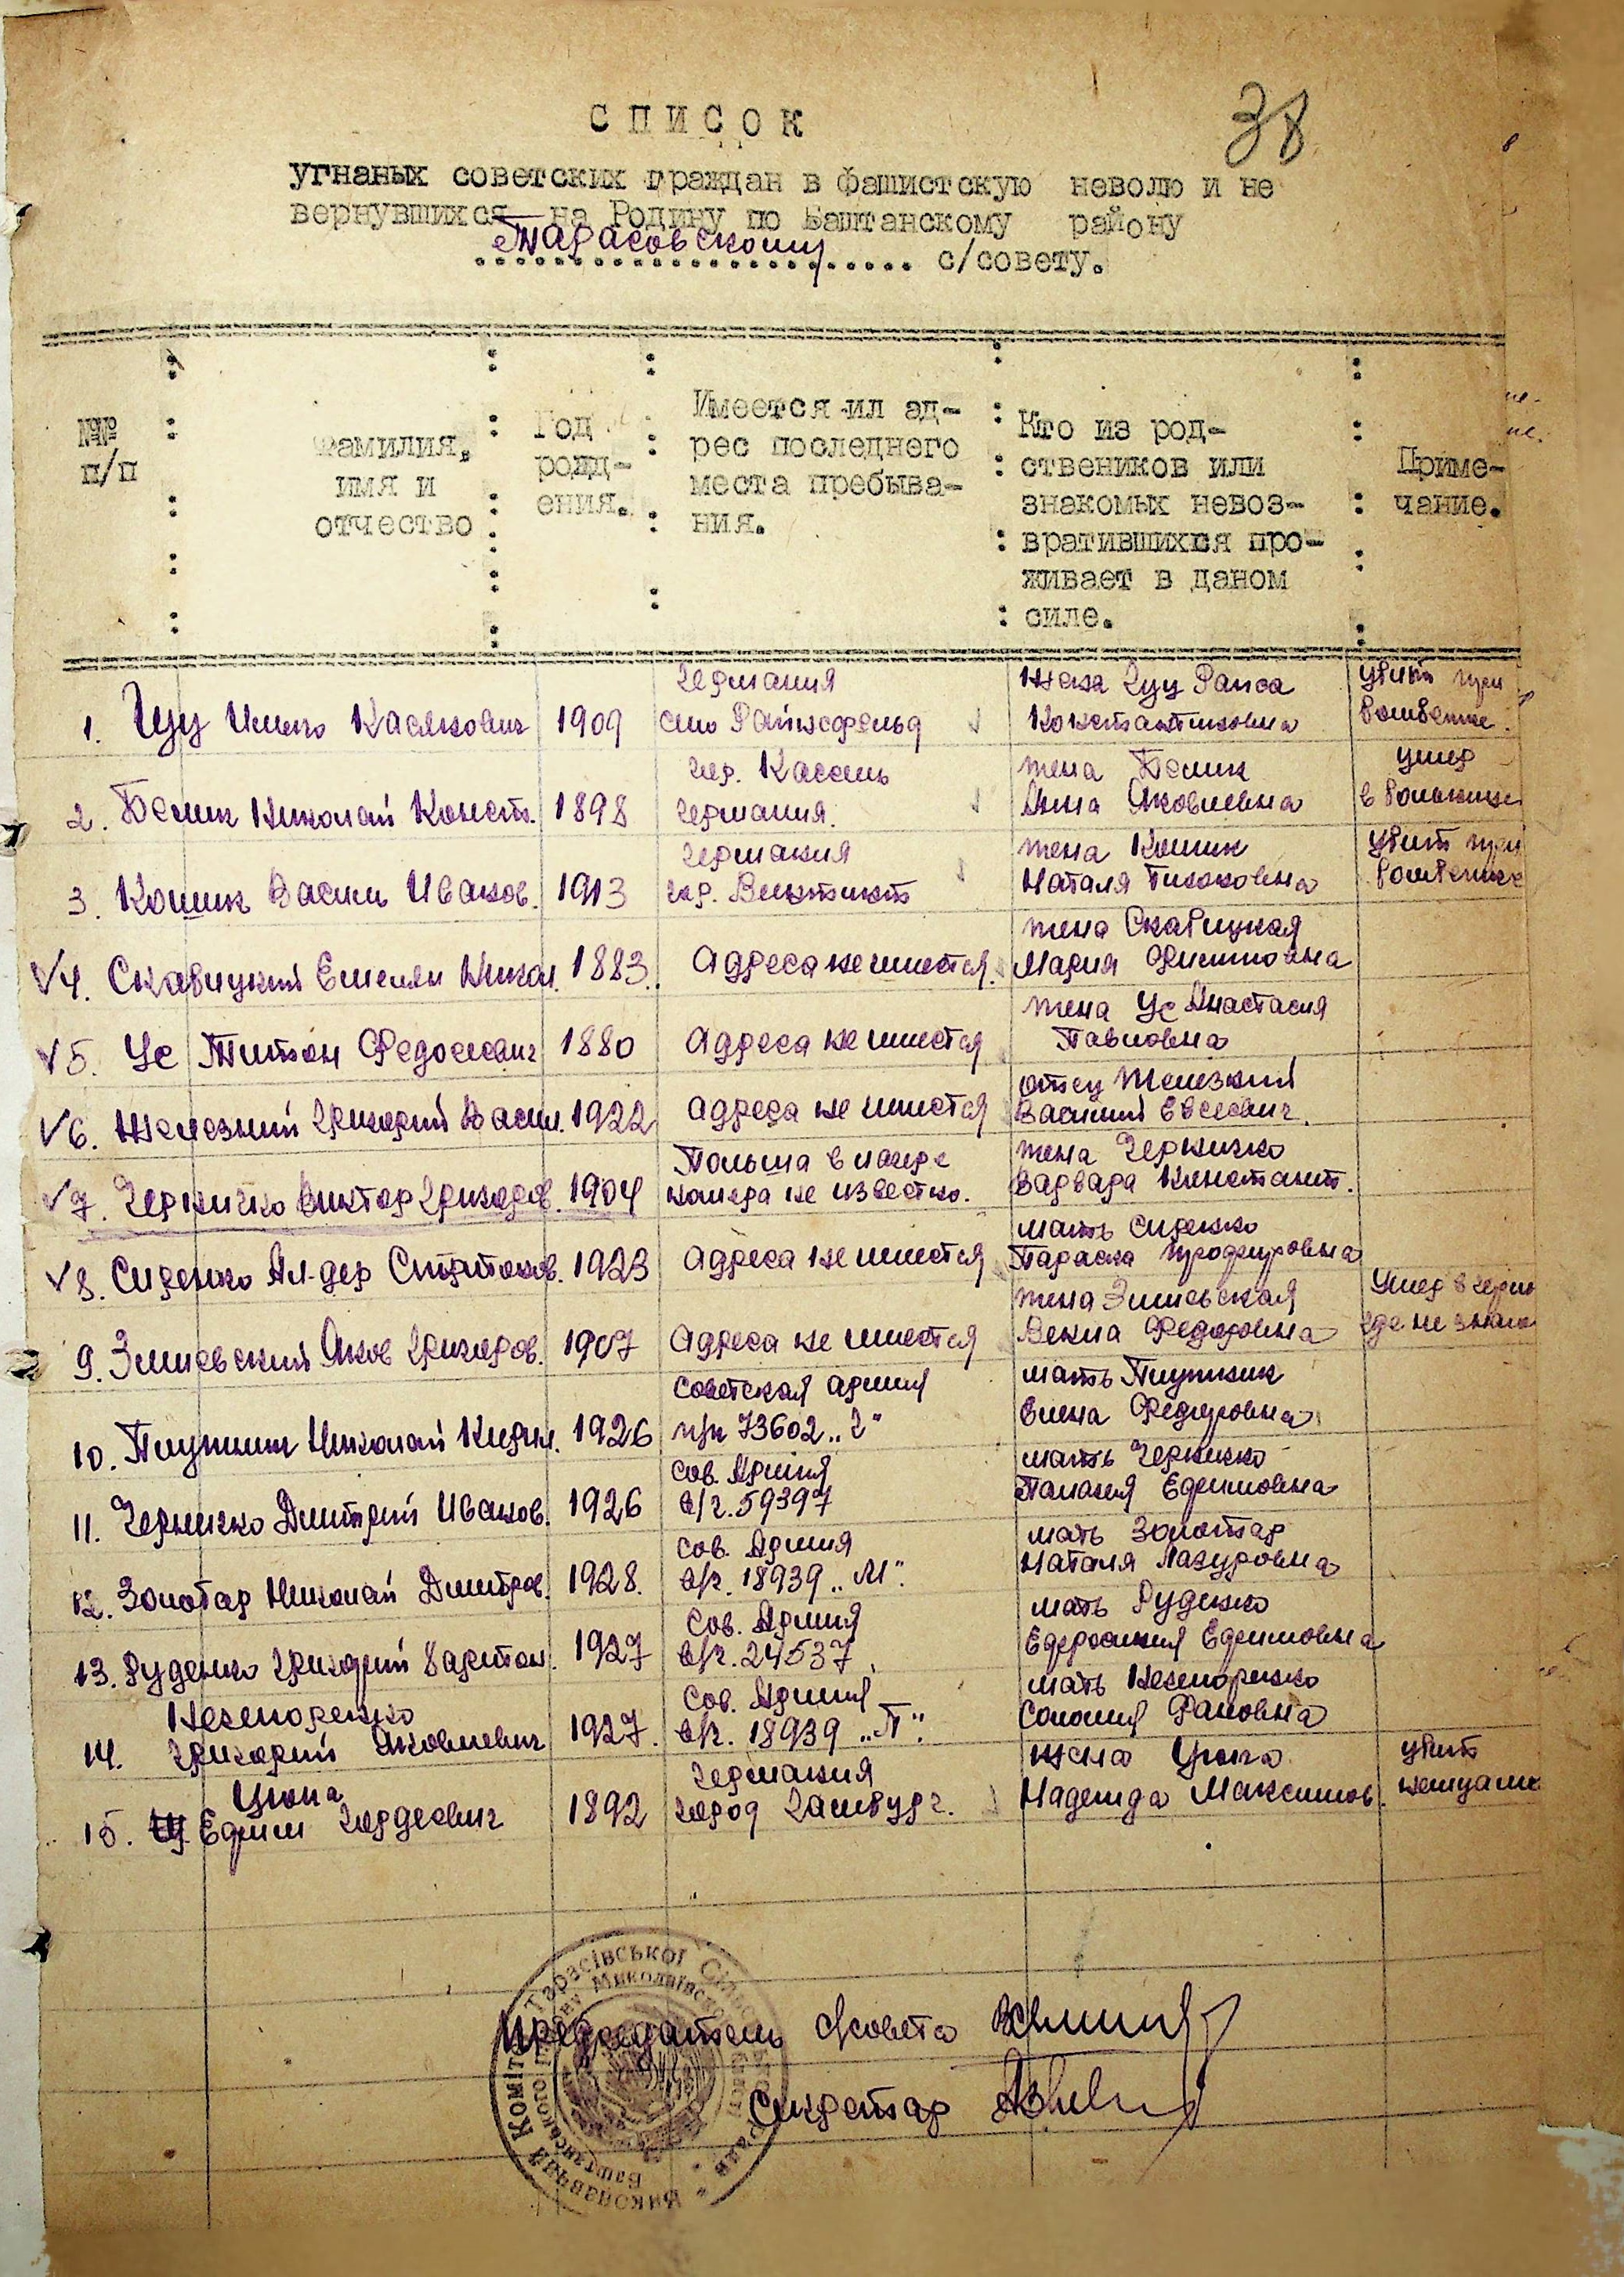 38
СПИСОК
угнаных советских граждан в фашистскую неволю и не
вернувшихся на Родину по Баштанскому району
Тарасовскому с/совету.
№№
п/п
Фамилия,
имя и
отчество
Год
рожд-
ения.
Имеется ил ад-
рес последнего
места пребыва-
ния.
Кто из род-
ствеников или
знакомых невоз-
вратившихся про-
живает в даном
силе.
Приме-
чание.
Германия
жена Гуц Раиса
убит при
1. Гуц Касянович 1909
село Райнсфельд
Константиновна
бомбежке.
гор. Кассель
жена Белик
умер
2. Белик Николай Конст. 1898
Германия.
Анна Яковлевна
в больнице
Германия
жена Кошик
убит при
3. Кошик Васил Иванов. 1913
гор.
Наталя Тихоновна
бомбежке
жена Скавицкая
√4. Скавицкий Емелян Никол. 1883.
Адреса не имеется.
Мария Филиповна
жена Ус Анастасия
√5. Ус Титон Федосеевич 1880
Адреса не имеется
Павловна
отец Железний
√6. Железний Григорий Васил. 1922
Адреса не имеется
Василий Евсеевич.
Польша в лагере
жена Черничко
√7. Черничко Виктор Григоров. 1904
номера не известно.
Варвара Констант.
мать Сиренко
√8. Сиренко Ал-дер 1923
Адреса не имеется
Параска Профировна
жена Змиевская
Умер в Герм
9. Змиевский Яков Григоров. 1907
Адреса не имеется
Федоровна
где не знаю
Советская армия
мать
10. Николай Кирил. 1926
п/п 73602 „Г“
Елена Федоровна
Сов. Армия
мать Черничко
11. Черничко Дмитрий Иванов. 1926
в/ч. 59397
Палагия Ефимовна
Сов. Армия
мать Золотар
12. Золотар Николай Дмитров. 1928.
в/ч. 18939 „М“.
Наталя Лазуровна
Сов. Армия
мать Руденко
13. Руденко Григорий Харитон. 1927
в/ч. 24537
Ефросиния Ефимовна
Незепоренко
Сов. Армия
мать Незепоренко
14. Григорий Яковлевич 1927.
в/ч. 18939 „П“.
Соломия
Германия
жена Урюпа
убит
Урюпа
15. Ефим Гордеевич 1892
город Гамбург.
Надежда Максимов.
немцами
Председатель с/совета
Секретар
Виконавчий Комітет Тарасівської Сільської Ради
Баштанського району Миколаївської